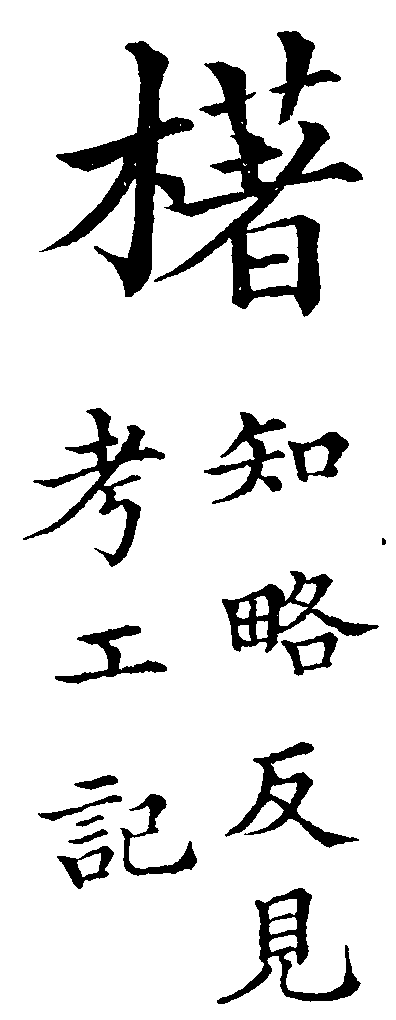 櫡
知略反見
考工記